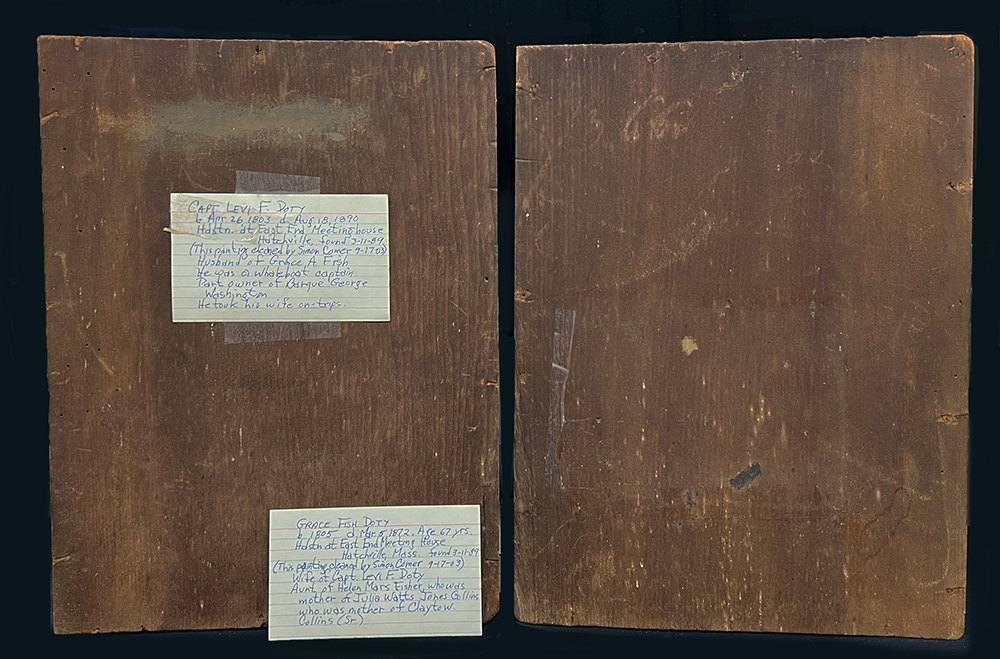 CAPT LEVI F. DOTY
b. Apr. 26 1803 d. Aug 18, 1890
Hdstn. at East End Meetinghouse
Hatchville, found 3-11-89
(This painting cleaned by Simon Comer 9-17 03)
Husband of Grace A Fish
He was a whaleboat captain
Part owner of Barque George
Washington
He took his wife on trips.
GRACE FISH DOTY
b. 1805 d. Mar 5, 1872. Age 67 yrs.
Hdstn at East End Meeting House
Hatchville Mass. found 3-11-89
(This painting cleaned by Simon Comer 9-17-03)
Wife of Capt. Levi F. Doty
Aunt of Helen Mars Fisher, who was
mother of Julia Watts Jones Collins
who was mother of Clayton
Collins (Sr.)